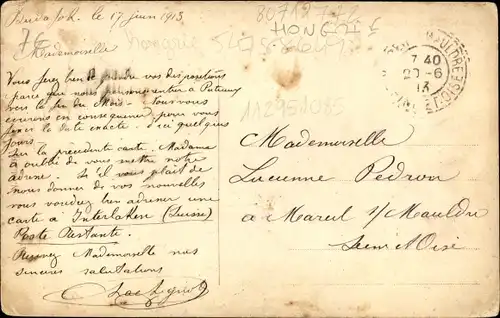 Budapesth. le 17 juin 1913
Mademoiselle
Vous ferez bien de prendre vos dispositions
parce que nous pensons rentrer à Puteaux
vers la fin du Mois. Nous vous
écrirons en conséquence pour vous
fixer la date exacte d'ici quelques
jours.
Sur la précédente carte. Madame
a oublié de vous mettre notre
adresse. S'il vous plait de
nous donner de vos nouvelles
vous voudrez bien adresser une
carte à Interlaken (Suisse)
Poste Restante.
Recevez Mademoiselle nos
sincères salutations
76
80712722
HONGRIE
hongrie
112951085
7 40
20-6
13
Mademoiselle
Lucienne Pedron
à Mareil s/Mauldre
Seine & Oise